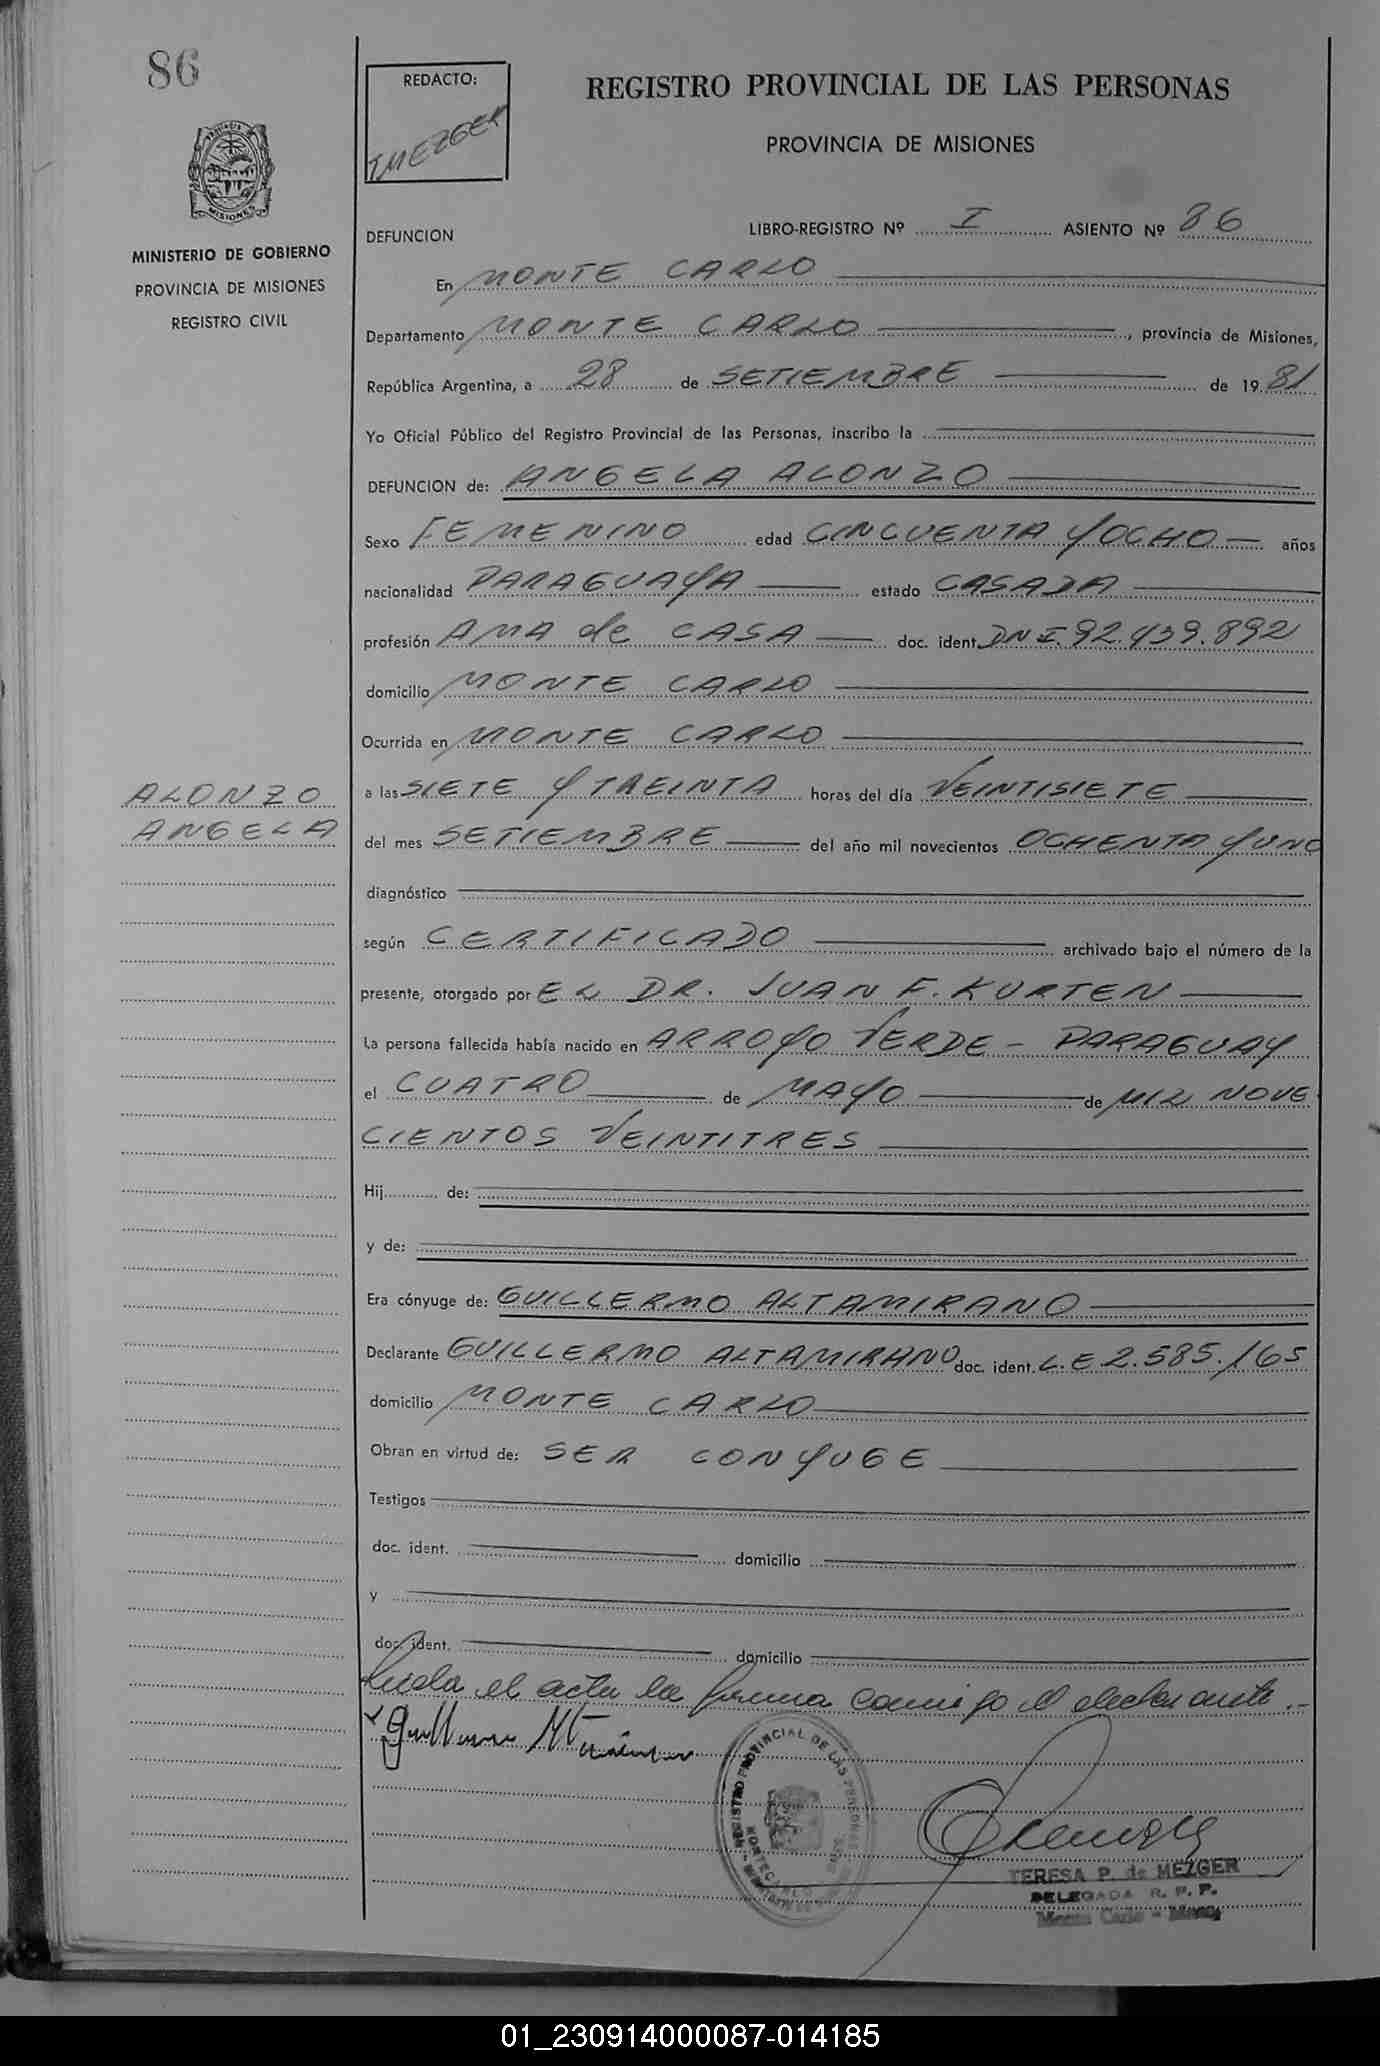 86
REDACTO:
T MEZGER
REGISTRO PROVINCIAL DE LAS PERSONAS
PROVINCIA DE MISIONES
MISIONES
MINISTERIO DE GOBIERNO
PROVINCIA DE MISIONES
REGISTRO CIVIL
DEFUNCION LIBRO-REGISTRO Nº I ASIENTO Nº 86
En MONTE CARLO
Departamento MONTE CARLO, provincia de Misiones,
República Argentina, a 28 de SETIEMBRE de 1981
Yo Oficial Público del Registro Provincial de las Personas, inscribo la
DEFUNCION de: ANGELA ALONZO
Sexo FEMENINO edad CINCUENTA Y OCHO años
nacionalidad PARAGUAYA estado CASADA
profesión AMA de CASA doc. ident. DNI 92.439.892
domicilio MONTE CARLO
Ocurrida en MONTE CARLO
ALONZO
ANGELA
a las SIETE Y TREINTA horas del día VEINTISIETE
del mes SETIEMBRE del año mil novecientos OCHENTA Y UNO
diagnóstico
según CERTIFICADO archivado bajo el número de la
presente, otorgado por EL DR. JUAN F. KURTEN
La persona fallecida había nacido en ARROYO VERDE - PARAGUAY
el CUATRO de MAYO de MIL NOVE
CIENTOS VEINTITRES
Hij de:
y de:
Era cónyuge de: GUILLERMO ALTAMIRANO
Declarante GUILLERMO ALTAMIRANO doc. ident. L.E 2.585.165
domicilio MONTE CARLO
Obran en virtud de: SER CONYUGE
Testigos
doc. ident. domicilio
y
doc. ident. domicilio
Leida el acta la firma conmigo el declarante.-
REGISTRO PROVINCIAL DE LAS PERSONAS
MONTECARLO
TERESA P. de MEZGER
DELEGADA R. P. P.
Monte Carlo - Mnes
01_230914000087-014185